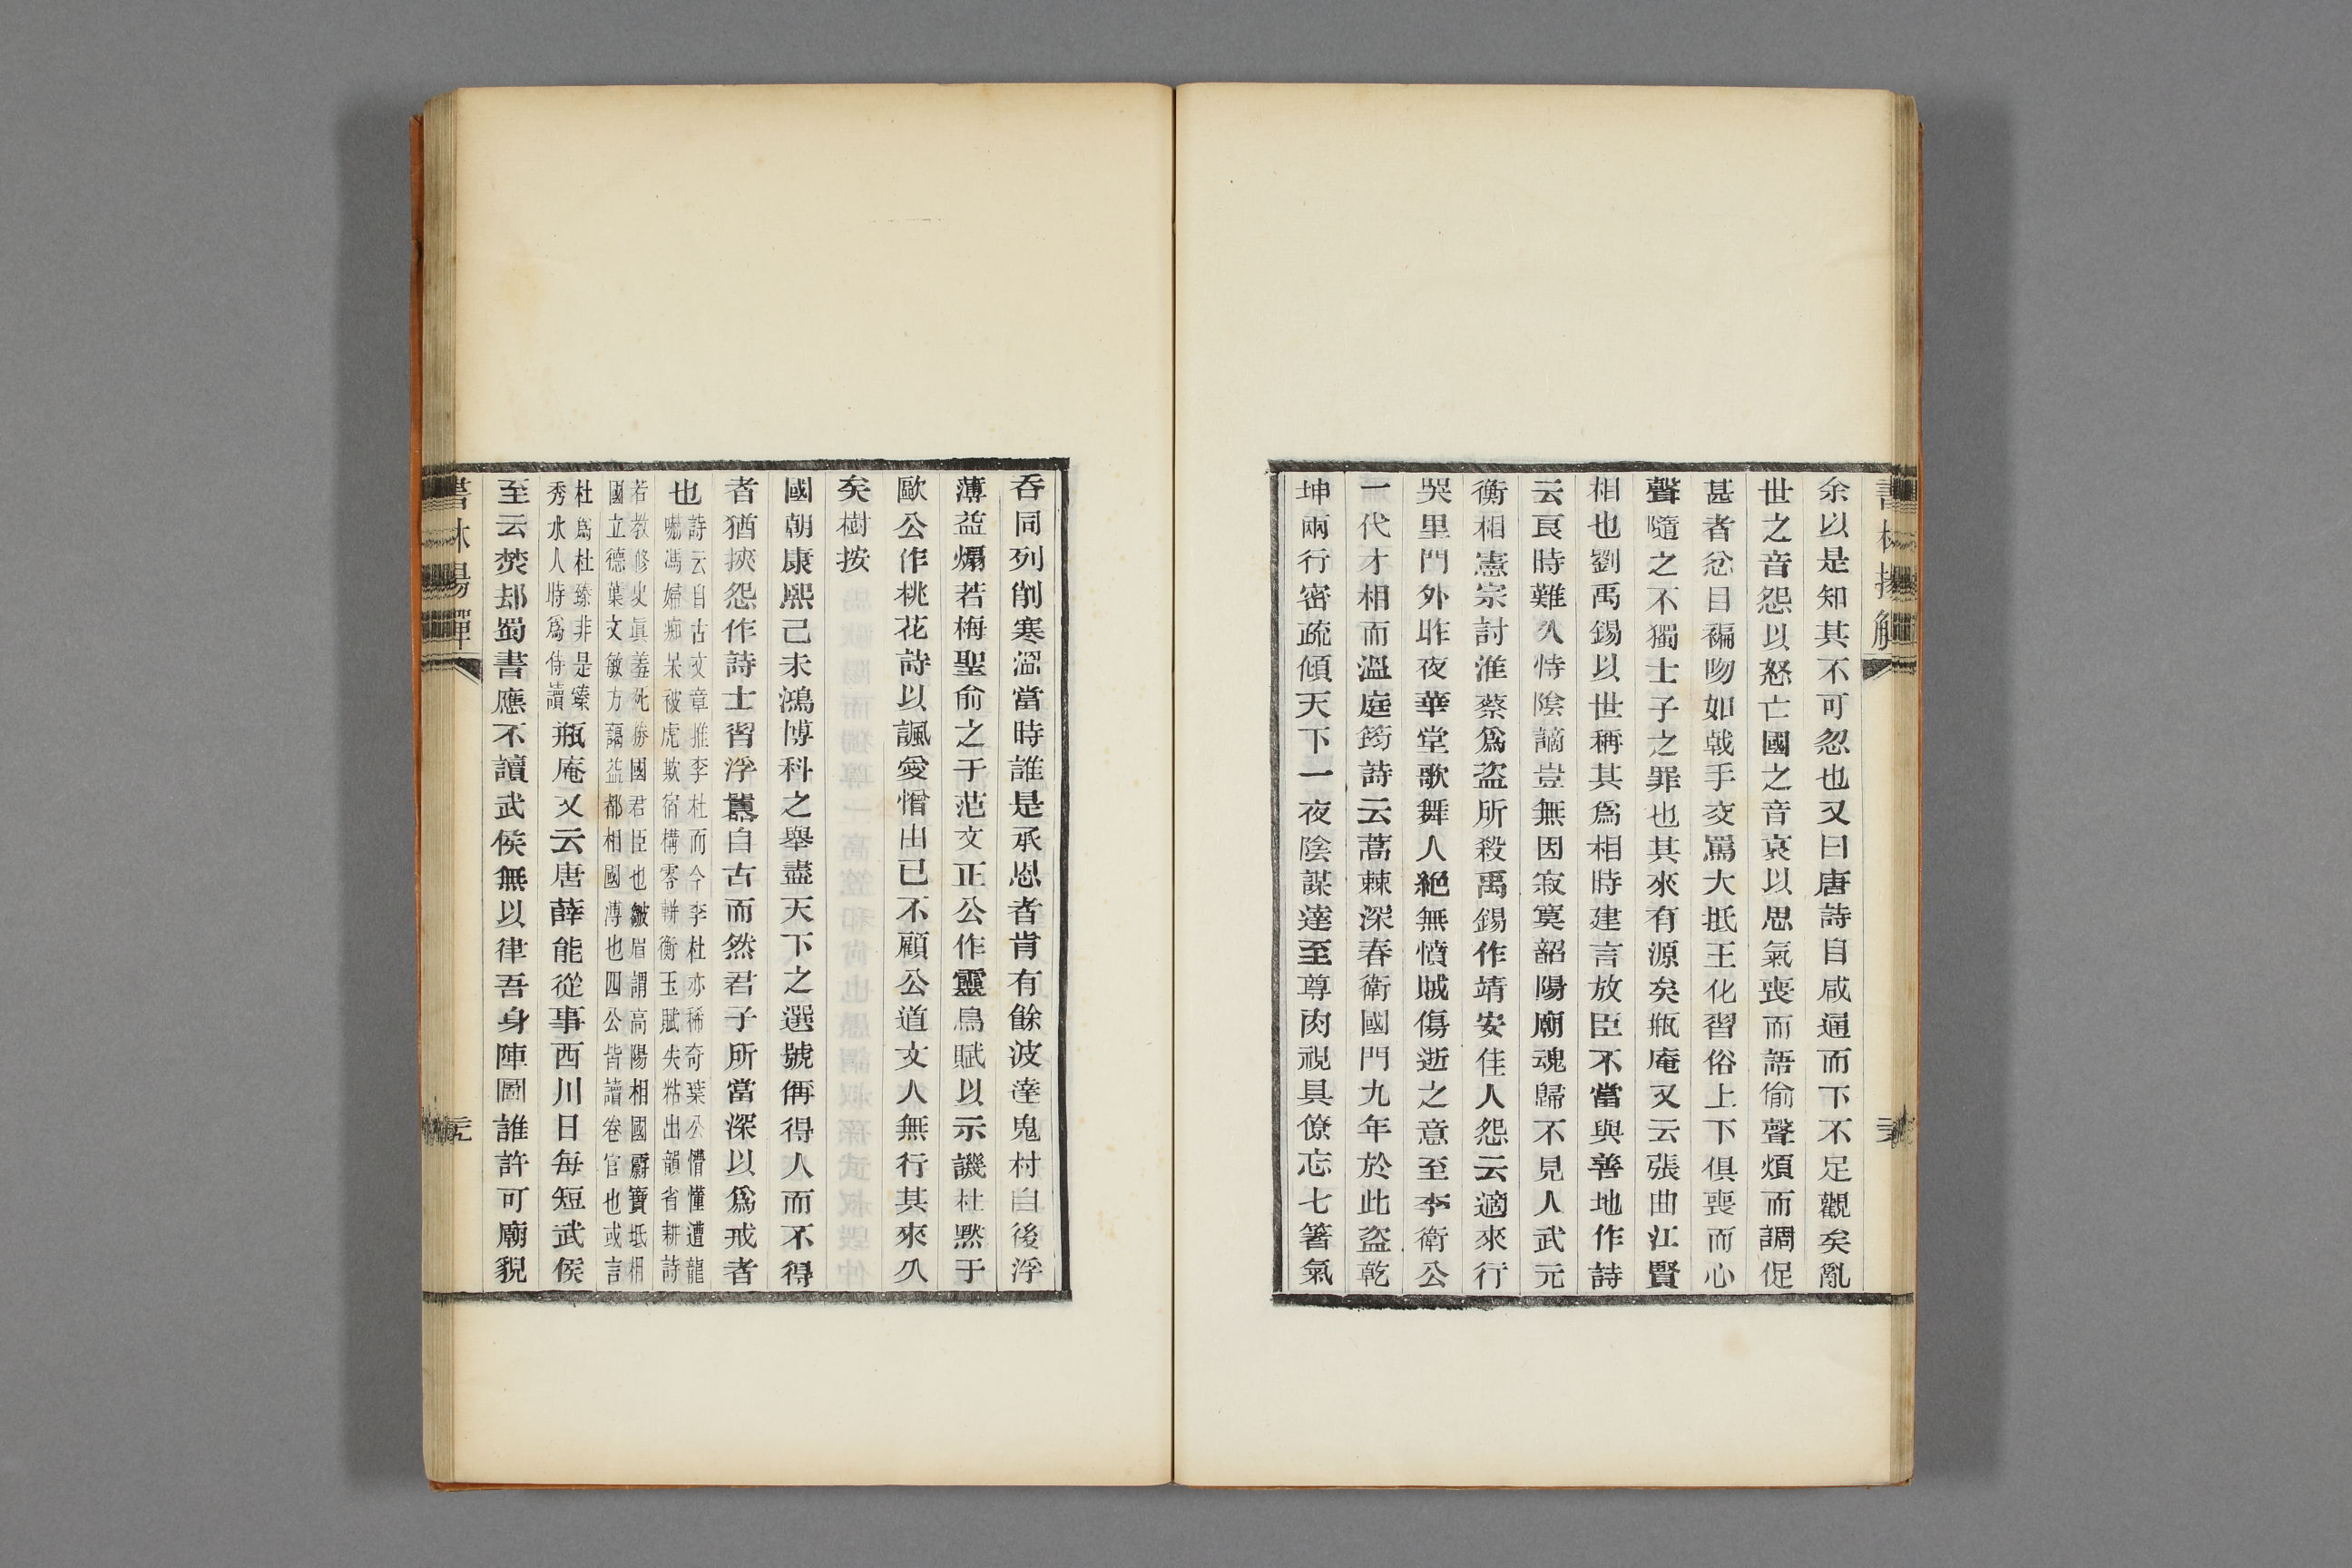 余以是知其不可忽也又曰唐詩自咸通而下不足觀矣亂
世之音怨以怒亡國之音哀以思氣喪而語偷聲煩而調促
甚者忿目褊吻如戟手交罵大抵王化習俗上下俱喪而心
聲隨之不獨士子之罪也其來有源矣瓶庵又云張曲江賢
相也劉禹錫以世稱其爲相時建言放臣不當與善地作詩
云良時難久恃陰謫豈無因寂寞韶陽廟魂歸不見人武元
衡相憲宗討淮蔡爲盜所殺禹錫作靖安佳人怨云適來行
哭里門外昨夜華堂歌舞人絕無憤賊傷逝之意至李衛公
一代才相而溫庭筠詩云蒿棘深春衛國門九年於此盜乾
坤兩行密疏傾天下一夜陰謀達至尊肉視具僚忘七箸氣
吞同列削寒溫當時誰是承恩者肯有餘波達鬼村自後浮
薄益煽若梅聖俞之于范文正公作靈烏賦以示譏杜黙于
歐公作桃花詩以諷愛憎由已不顧公道文人無行其來久
矣樹按
國朝康熙己未鴻博科之舉盡天下之選號稱得人而不得
者猶挾怨作詩士習浮囂自古而然君子所當深以爲戒者
也
詩云自古文章推李杜而今李杜亦稀奇葉公懵懂遭龍
嚇馮婦痴呆被虎欺宿構零軿衡玉賦失粘出韻省耕詩
若教修史眞羞死勝國君臣也皺眉謂高陽相國霨寶坻相
國立德葉文敏方藹益都相國溥也四公皆讀卷官也或言
杜爲杜臻非是臻
秀水人時爲侍讀
瓶庵又云唐薛能從事西川日每短武侯
至云焚却蜀書應不讀武侯無以律吾身陣圖誰許可廟貌